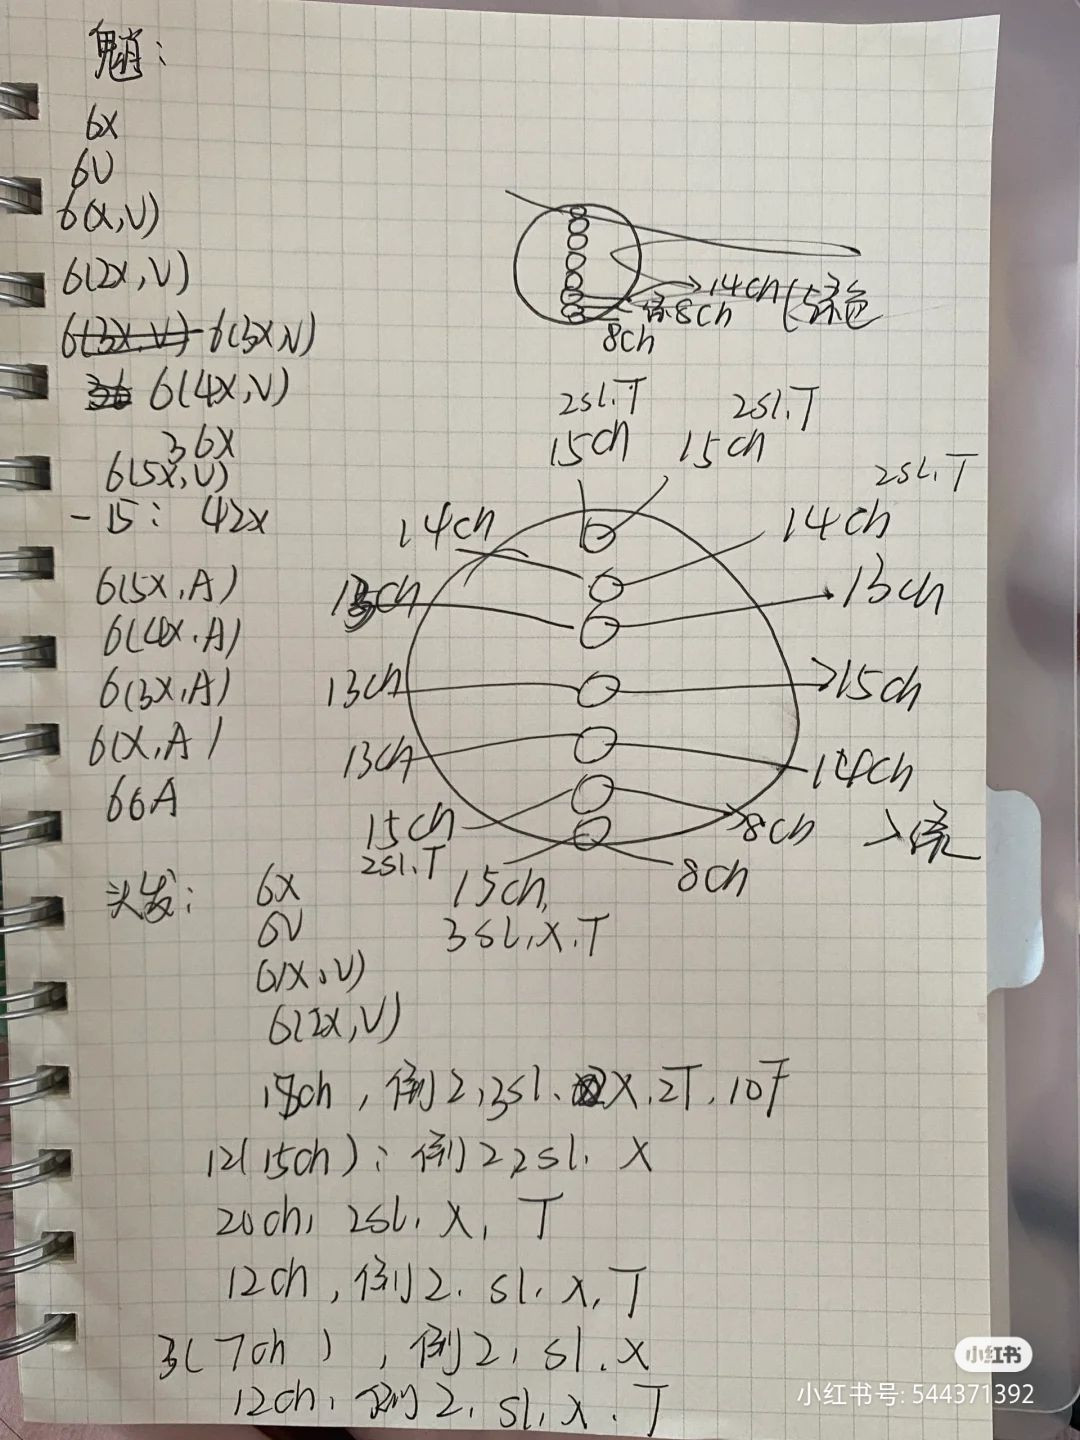 魈:
6X
6V
6(X,V)
6(2X,V)
6(3X,V) 6(3X,V)
36 6(4X,V)
36X
6(5X,V)
-15: 42X
6(5X,A)
6(4X,A)
6(3X,A)
6(X,A)
66A
14ch
绿8ch
8ch
2sl.T
15ch
2sl.T
15ch
2sl.T
14ch
14ch
13ch
13ch
13ch
15ch
13ch
14ch
15ch
2sl.T
8ch
8ch
15ch,
3sl,X,T
头发:
6X
6V
6(X,V)
6(2X,V)
18ch, 倒2,3sl. X,2T,10F
12(15ch): 倒2 2sl. X
20ch, 2sl, X, T
12ch, 倒2. sl. X, T
3(7ch), 倒2, sl. X
12ch, 倒2, sl, X. T
小红书
小红书号: 544371392